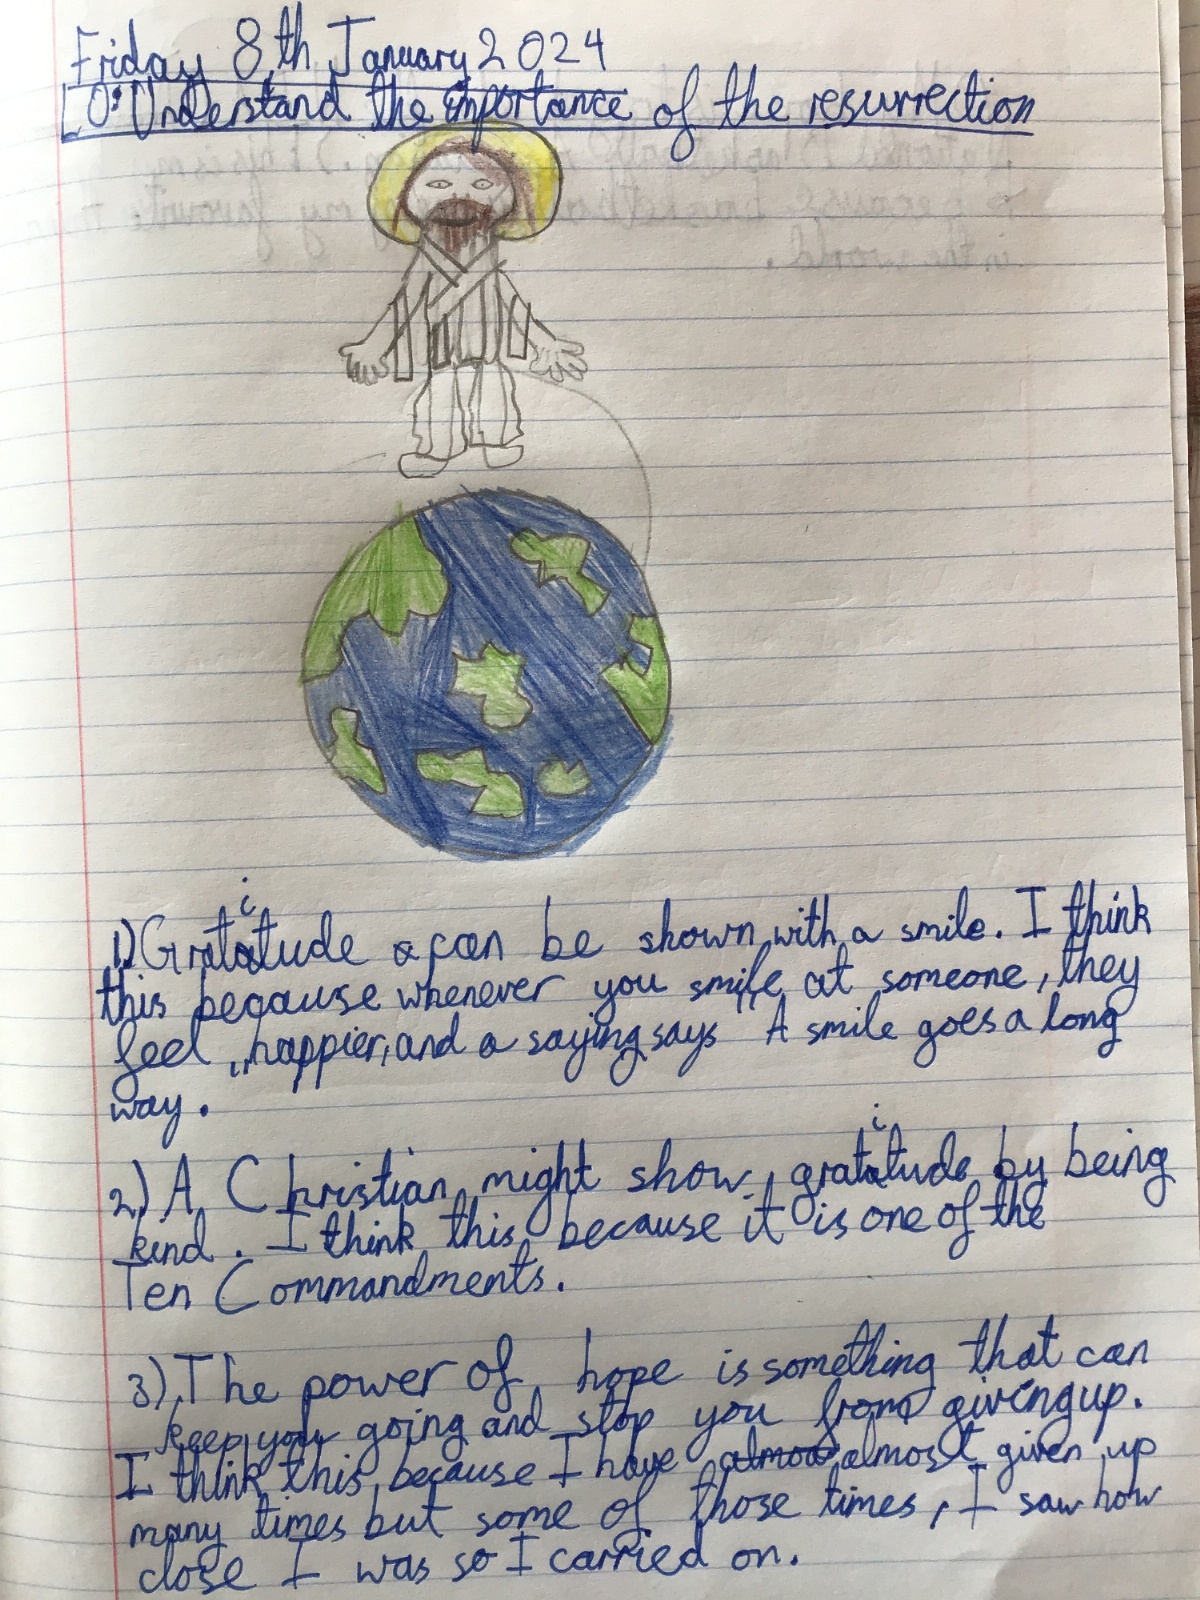 Friday 8th January 2024
LO: Understand the importance of the resurrection
1) Gratitude can be shown with a smile. I think
this because whenever you smile at someone, they
feel happier, and a saying says "A smile goes a long
way.
2) A Christian might show gratitude by being
kind. I think this because it is one of the
Ten Commandments.
3) The power of hope is something that can
keep you going and stop you from giving up.
I think this because I have almost given up
many times but some of those times, I saw how
close I was so I carried on.